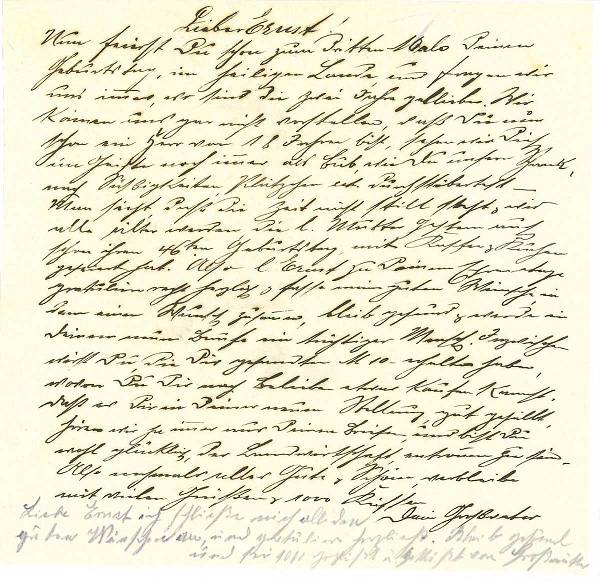 Lieber Ernst!
Nun feierst Du schon zum dritten Male Deinen
Geburtstag, im heiligen Lande und fragen wir
uns immer, wo sind die zwei Jahre geblieben. Wir
können uns gar nicht vorstellen, daß Du nun
schon ein Herr von 18 Jahren bist, sehen wir Dich
im Geiste noch immer als Bub, wie Du unsern
nach Süßigkeiten Plätzchen ect. durchstöbertest –
Man sieht, daß die Zeit nicht still steht & wir
alle älter werden. Die l. Mutter gestern auch
schon ihren 46ten Geburtstag, mit Kaffee & Kuchen
gefeiert hat. Also l. Ernst zu Deinem
gratuliere recht herzlich & fasse meine guten Wünsche in
dem einen Wunsch zusammen, bleib gesund & werde in
Deinem neuen Berufe ein tüchtiger Mensch. Inzwischen
wirst Du, die Dir gesandten M 10.- erhalten haben,
wovon Du Dir nach Belieben etwas kaufen kannst.
Daß es Dir in Deiner neuen Stellung gut gefällt,
wir ja immer aus Deinen Briefen, und bist Du
wohl glücklich, der Landwirtschaft entronnen zu sein.
Also nochmals alles Gute & Schöne, verbleibe
mit vielen Grüßen & 1000 Küssen
Dein Großvater
Liebe Ernst ich schließe mich all den
guten Wünschen an, und gratuliere herzlichst. Bleib gesund
und sei gegrüßt u. geküßt von Großmutter